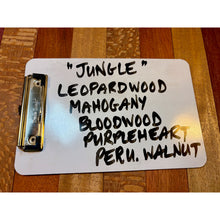 "JUNGLE"
LEOPARDWOOD
MAHOGANY
BLOODWOOD
PURPLEHEART
PERU. WALNUT